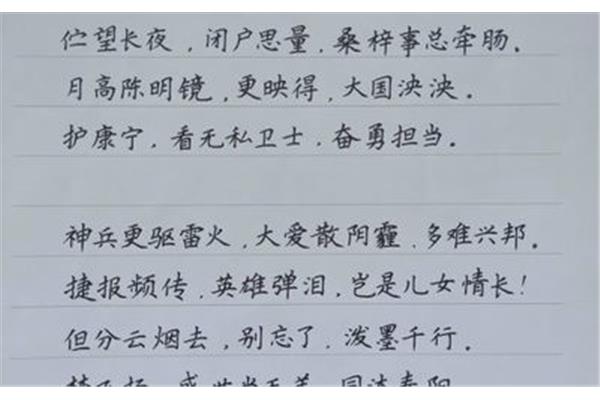 伫望长夜，闭户思量，桑梓事总牵肠。
月高陈明镜，更映得，大国泱泱。
护康宁，看无私卫士，奋勇担当。
神兵更驱雷火，大爱散阴霾，多难兴邦。
捷报频传，英雄弹泪，岂是儿女情长！
但分云烟去，别忘了，泼墨千行。